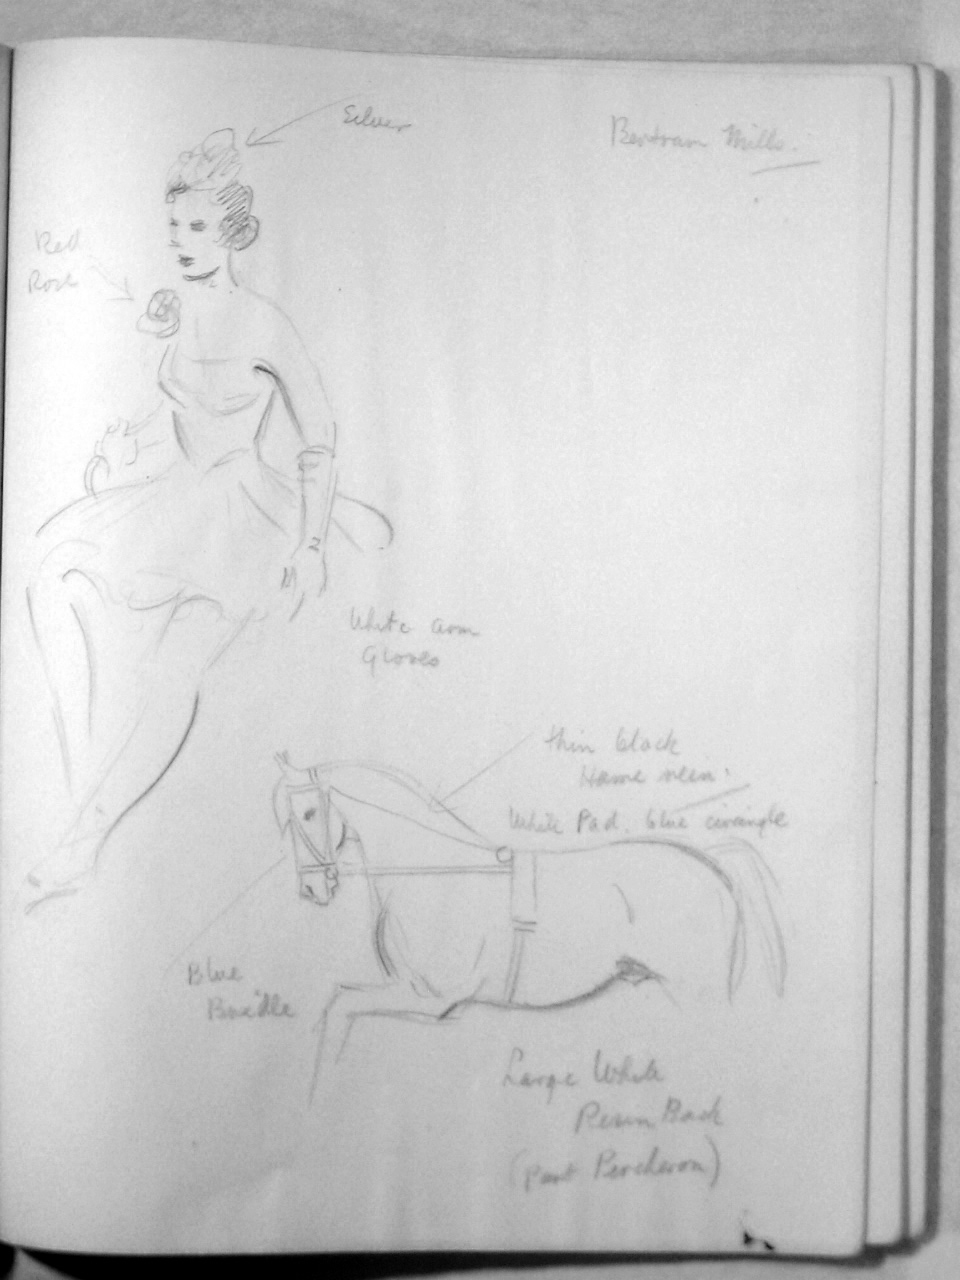 Silver
Bertram Mills.
Red
Rose
White arm
Gloves
thin black
rein.
White Pad. blue
Blue
Bridle
Large White
Resin Back
(part Percheron)